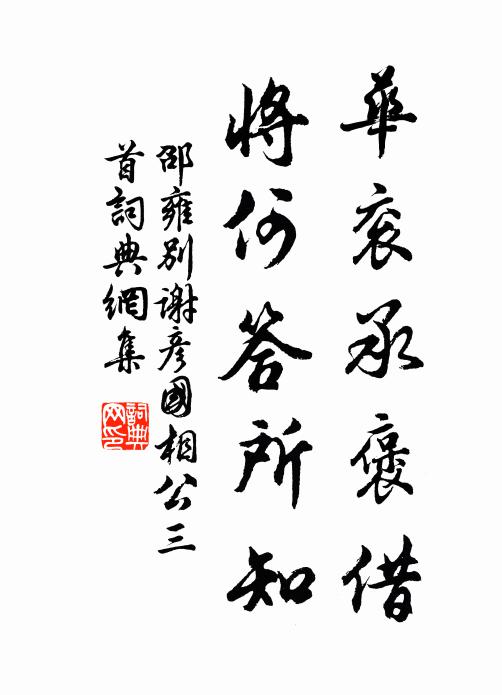 華袞承褒借
將何答所知
邵雍別謝彦國相公三
首詞典網集
詞典
网印